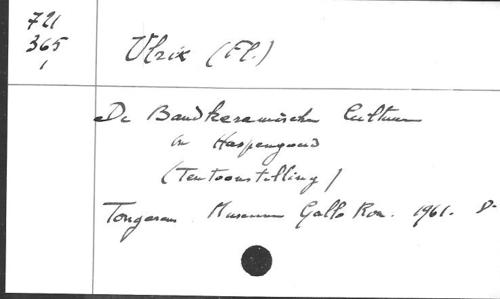 721
365
1
Ulrix (Fl.)
De Bandkeramische Cultuur
in Haspengouw
(Tentoonstelling)
Tongeren. Museum Gallo Rom. 1961. D-